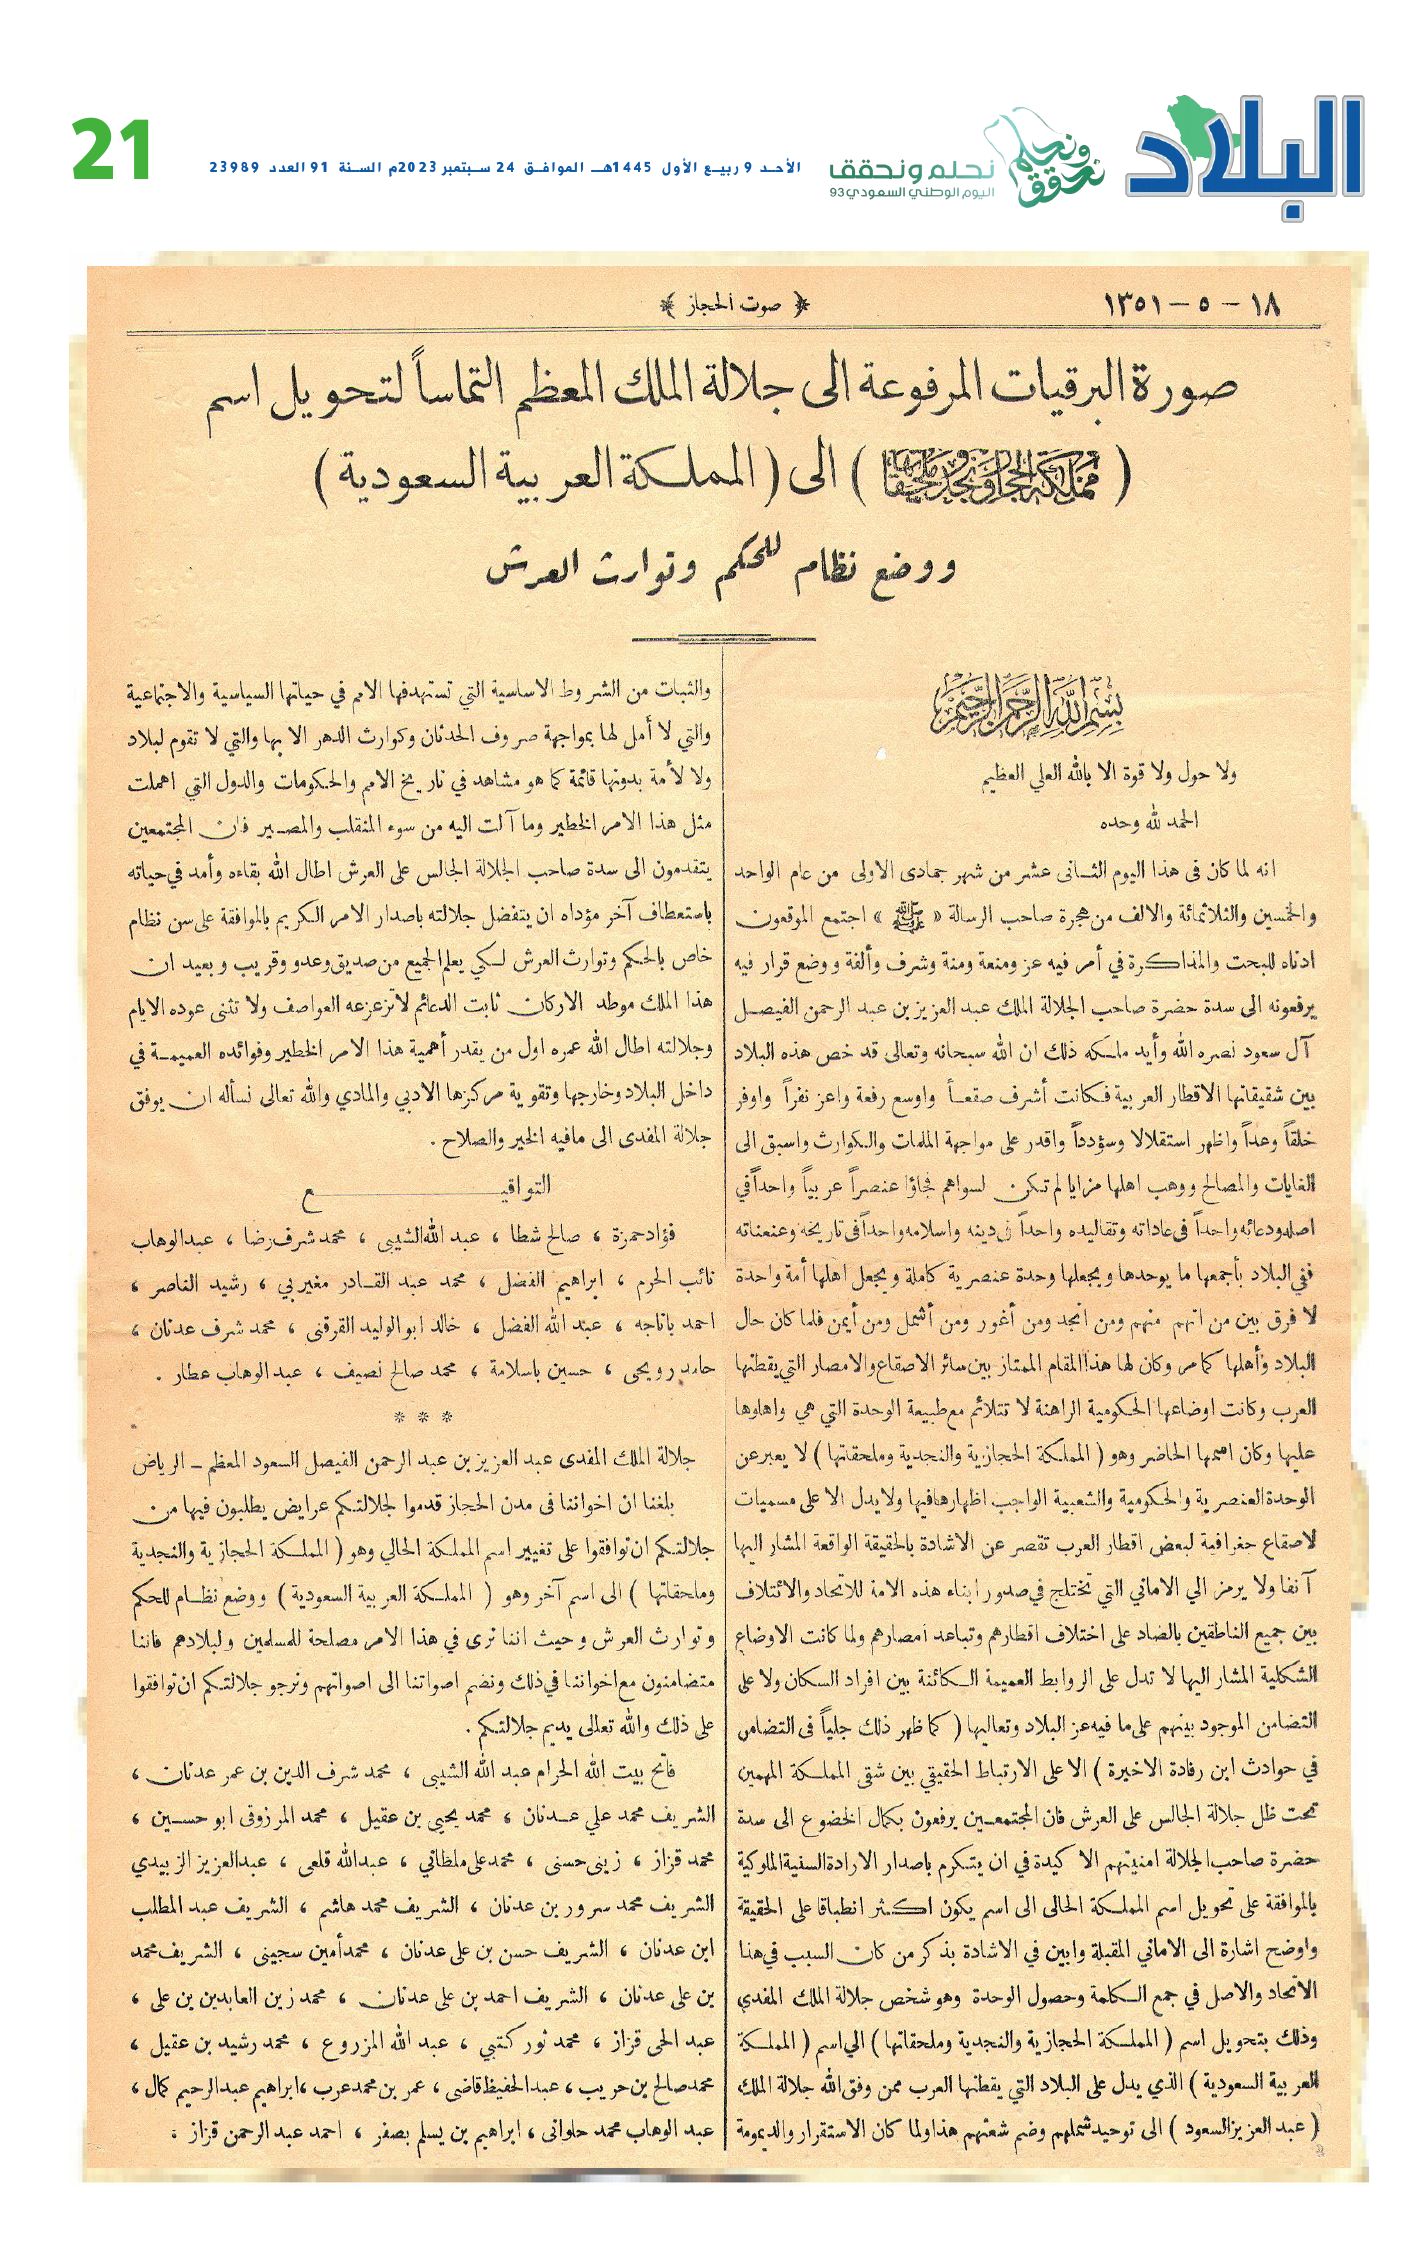 البلاد
ونحلم نحقق
نحلم ونحقق
اليوم الوطني السعودي 93
الأحد 9 ربيع الأول 1445هـ الموافق 24 سبتمبر 2023م السنة 91 العدد 23989
21
١٨ – ٥ – ١٣٥١
﴿ صوت الحجاز ﴾
صورة البرقيات المرفوعة الى جلالة الملك المعظم التماساً لتحويل اسم
( مملكة الحجاز ونجد وملحقاتها ) الى ( المملكة العربية السعودية )
ووضع نظام للحكم وتوارث العرش
بسم الله الرحمن الرحيم
ولا حول ولا قوة الا بالله العلي العظيم
الحمد لله وحده
انه لما كان فى هذا اليوم الثانى عشر من شهر جمادى الاولى من عام الواحد
والخمسين والثلاثمائة والالف من هجرة صاحب الرسالة « ﷺ » اجتمع الموقعون
ادناه للبحث والمذاكرة في أمر فيه عز ومنعة ومنة وشرف وألفة ووضع قرار فيه
يرفعونه الى سدة حضرة صاحب الجلالة الملك عبد العزيز بن عبد الرحمن الفيصل
آل سعود نصره الله وأيد ملكه ذلك ان الله سبحانه وتعالى قد خص هذه البلاد
بين شقيقاتها الاقطار العربية فكانت أشرف صقعاً واوسع رفعة واعز نفراً واوفر
خلقاً وعداً واظهر استقلالا وسؤدداً واقدر على مواجهة الملمات والكوارث واسبق الى
الغايات والمصالح ووهب اهلها مزايا لم تكن لسواهم فجاؤا عنصراً عربياً واحداً في
اصله ودعائه واحداً فى عاداته وتقاليده واحداً فى دينه واسلامه واحداً فى تاريخه وعنعناته
ففي البلاد بأجمعها ما يوحدها ويجعلها وحدة عنصرية كاملة ويجعل اهلها أمة واحدة
لا فرق بين من اتهم منهم ومن انجد ومن أغور ومن أشمل ومن أيمن فلما كان حال
البلاد وأهلها كما مر وكان لها هذا المقام الممتاز بين سائر الاصقاع والامصار التي يقطنها
العرب وكانت اوضاعها الحكومية الراهنة لا تتلائم مع طبيعة الوحدة التي هي واهلوها
عليها وكان اسمها الحاضر وهو ( المملكة الحجازية والنجدية وملحقاتها ) لا يعبر عن
الوحدة العنصرية والحكومية والشعبية الواجب اظهارها فيها ولا يدل الا على مسميات
لاصقاع جغرافية لبعض اقطار العرب تقصر عن الاشادة بالحقيقة الواقعة المشار اليها
آنفا ولا يرمز الي الاماني التي تختلج في صدور ابناء هذه الامة للاتحاد والائتلاف
بين جميع الناطقين بالضاد على اختلاف اقطارهم وتباعد امصارهم ولما كانت الاوضاع
الشكلية المشار اليها لا تدل على الروابط العميمة الكائنة بين افراد السكان ولا على
التضامن الموجود بينهم على ما فيه عز البلاد وتعاليها ( كما ظهر ذلك جلياً فى التضامن
في حوادث ابن رفادة الاخيرة ) الا على الارتباط الحقيقي بين شقي المملكة المهمين
تحت ظل جلالة الجالس على العرش فان المجتمعين يرفعون بكمال الخضوع الى سدة
حضرة صاحب الجلالة امنيتهم الاكيدة في ان يتكرم باصدار الارادة السنية الملوكية
بالموافقة على تحويل اسم المملكة الحالى الى اسم يكون اكثر انطباقا على الحقيقة
واوضح اشارة الى الاماني المقبلة وابين في الاشادة بذكر من كان السبب في هذا
الاتحاد والاصل في جمع الكلمة وحصول الوحدة وهو شخص جلالة الملك المفدي
وذلك بتحويل اسم ( المملكة الحجازية والنجدية وملحقاتها ) الي اسم ( المملكة
العربية السعودية ) الذي يدل على البلاد التي يقطنها العرب ممن وفق الله جلالة الملك
( عبد العزيز السعود ) الى توحيد شملهم وضم شعثهم هذا ولما كان الاستقرار والديمومة
والثبات من الشروط الاساسية التي تستهدفها الامم في حياتها السياسية والاجتماعية
والتي لا أمل لها بمواجهة صروف الحدثان وكوارث الدهر الا بها والتي لا تقوم لبلاد
ولا لأمة بدونها قائمة كما هو مشاهد في تاريخ الامم والحكومات والدول التي اهملت
مثل هذا الامر الخطير وما آلت اليه من سوء المنقلب والمصير فان المجتمعين
يتقدمون الى سدة صاحب الجلالة الجالس على العرش اطال الله بقاءه وأمد في حياته
باستعطاف آخر مؤداه ان يتفضل جلالته باصدار الامر الكريم بالموافقة على سن نظام
خاص بالحكم وتوارث العرش لكي يعلم الجميع من صديق وعدو وقريب وبعيد ان
هذا الملك موطد الاركان ثابت الدعائم لا تزعزعه العواصف ولا تثنى عوده الايام
وجلالته اطال الله عمره اول من يقدر أهمية هذا الامر الخطير وفوائده العميمة في
داخل البلاد وخارجها وتقوية مركزها الادبي والمادي والله تعالى نسأله ان يوفق
جلالة المفدى الى مافيه الخير والصلاح .
التواقيع
فؤاد حمزة ، صالح شطا ، عبد الله الشيبى ، محمد شرف رضا ، عبد الوهاب
نائب الحرم ، ابراهيم الفضل ، محمد عبد القادر مغيربي ، رشيد الناصر ،
احمد باناجه ، عبد الله الفضل ، خالد ابو الوليد القرقنى ، محمد شرف عدنان ،
حامد رويحى ، حسين باسلامة ، محمد صالح نصيف ، عبد الوهاب عطار .
* * *
جلالة الملك المفدى عبد العزيز بن عبد الرحمن الفيصل السعود المعظم – الرياض
بلغنا ان اخواننا فى مدن الحجاز قدموا لجلالتكم عرايض يطلبون فيها من
جلالتكم ان توافقوا على تغيير اسم المملكة الحالي وهو ( المملكة الحجازية والنجدية
وملحقاتها ) الى اسم آخر وهو ( المملكة العربية السعودية ) ووضع نظام للحكم
وتوارث العرش وحيث اننا نرى في هذا الامر مصلحة للمسلمين ولبلادهم فاننا
متضامنون مع اخواننا في ذلك ونضم اصواتنا الى اصواتهم ونرجو جلالتكم ان توافقوا
على ذلك والله تعالى يديم جلالتكم .
فاتح بيت الله الحرام عبد الله الشيبى ، محمد شرف الدين بن عمر عدنان ،
الشريف محمد علي عدنان ، محمد يحيى بن عقيل ، محمد المرزوقى ابو حسين ،
محمد قزاز ، زينى حسنى ، محمد على ملطانى ، عبد الله قلعى ، عبد العزيز الزبيدي
الشريف محمد سرور بن عدنان ، الشريف محمد هاشم ، الشريف عبد المطلب
ابن عدنان ، الشريف حسن بن على عدنان ، محمد أمين سجينى ، الشريف محمد
بن على عدنان ، الشريف احمد بن على عدنان ، محمد زين العابدين بن على ،
عبد الحى قزاز ، محمد نور كتبي ، عبد الله المزروع ، محمد رشيد بن عقيل ،
محمد صالح بن حريب ، عبد الحفيظ قاضى ، عمر بن محمد عرب ، ابراهيم عبد الرحيم كمال ،
عبد الوهاب محمد حلوانى ، ابراهيم بن يسلم بصفر ، احمد عبد الرحمن قزاز ؛